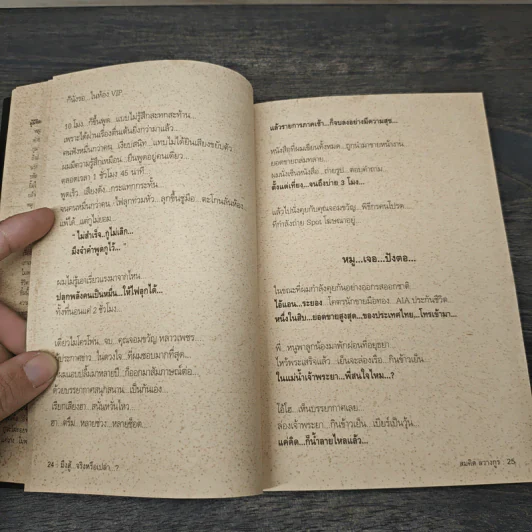 ก็นั่งรอ...ในห้อง VIP...
18 โมง...ก็ขึ้นพูด...แบบไม่รู้สึกสะทกสะท้าน...
เพราะได้ผ่านเรื่องตื่นเต้นยิ่งกว่ามาแล้ว...
คนฟังหมื่นกว่าคน...เงียบสนิท...แทบไม่ได้ยินเสียงขยับตัว
ผมมีความรู้สึกเหมือน...ยืนพูดอยู่คนเดียว...
ตลอดเวลา 1 ชั่วโมง 45 นาที...
พูดเร็ว...เสียงดัง...กระแทกกระทั้น...
จนคนหมื่นกว่าคน...ไฟลุกท่วมหัว...ลุกขึ้นชูมือ...ตะโกนลั่นห้อง
แพ้ได้...แต่กูไม่ยอม
" ไม่สำเร็จ...กูไม่เลิก...
มึงจำคำพูดกูไว้... "
ผมไม่รู้เอาเรี่ยวแรงมาจากไหน
ปลุกพลังคนเป็นหมื่น...ให้ไฟลุกได้...
ทั้งที่นอนแค่ 2 ชั่วโมง...
เดี่ยวไมโครโฟน...จบ...คุณจอมขวัญ หลาวเพชร...
ประกาศข่าว...ในดวงใจ...ที่ผมชอบมากที่สุด...
ผมแอบปลื้มมาหลายปี...ก็ออกมาสัมภาษณ์ต่อ...
ด้วยบรรยากาศสนุกสนาน...เป็นกันเอง...
เรียกเสียงฮา...สนั่นหวั่นไหว...
ฮา...ครืม...หลายช่วง...หลายช็อต...
24 : มึงสู้...จริงหรือเปล่า...?
แล้วรายการภาคเช้า...ก็จบลงอย่างมีความสุข...
หนังสือที่ผมเขียนทั้งหมด...ถูกนำมาขายหน้างาน
ยอดขายถล่มทลาย...
ผมนั่งเซ็นหนังสือ...ถ่ายรูป...ตอบคำถาม...
ตั้งแต่เที่ยง...จนถึงบ่าย 3 โมง...
แล้วไปนั่งคุยกับคุณจอมขวัญ...พิธีกรคนโปรด...
ที่กำลังถ่าย Spot โฆษณาอยู่...
หมู...เจอ...ปังตอ...
ในขณะที่ผมกำลังคุยกันอย่างออกรสออกชาติ
ไอ้แอน...ระยอง...โคตรนักขายมือทอง...AIA ประกันชีวิต...
หนึ่งในสิบ...ยอดขายสูงสุด...ของประเทศไทย...โทรเข้ามา...
พี่...หนูพาลูกน้องมาพักผ่อนที่อยุธยา
ไหว้พระเสร็จแล้ว...เย็นจะล่องเรือ...กินข้าวเย็น...
ในแม่น้ำเจ้าพระยา...พี่สนใจไหม...?
โอ้โฮ...เห็นบรรยากาศเลย...
ล่องเจ้าพระยา...กินข้าวเย็น...เบียร์เป็นวุ้น...
แค่คิด...ก็น้ำลายไหลแล้ว...
สมคิด ลวางกูร : 25